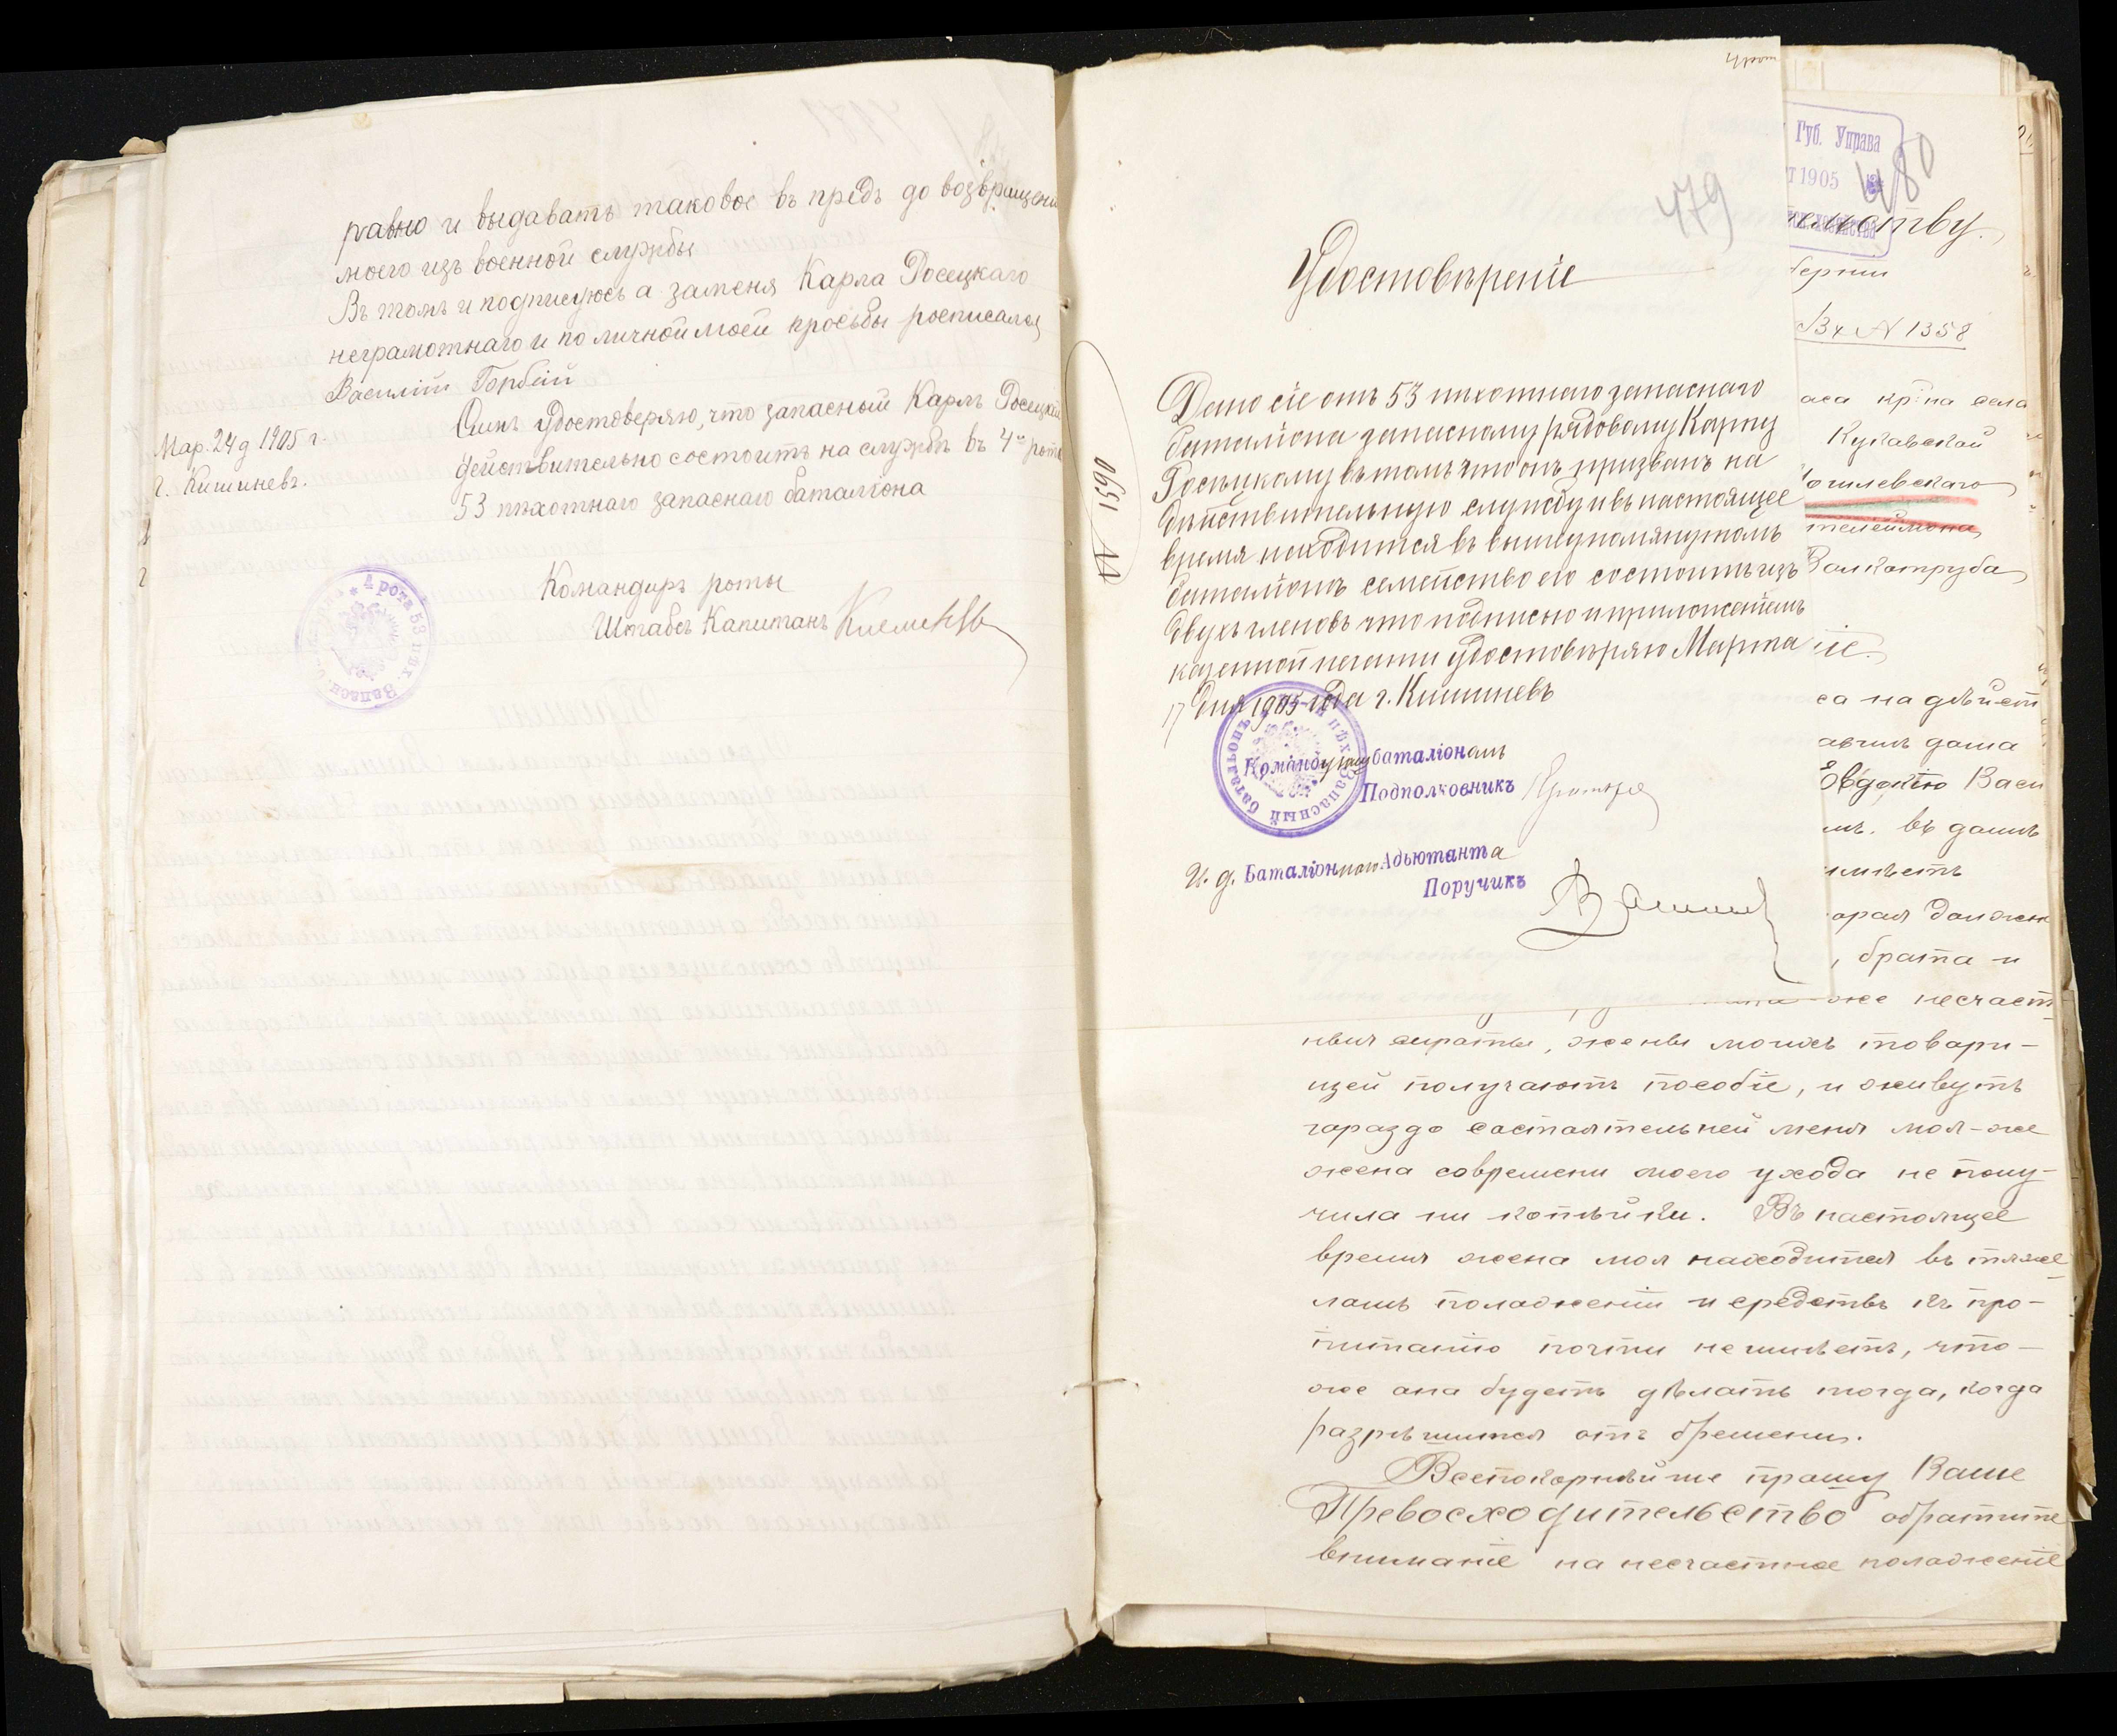 равно и выдавать таковое въ предь до возвращени
моего изъ военной службы
Въ томъ и подписуюсь а заменя Карла Росецкаго
неграмотнаго и по личной моей просьбы росписался
Василій Горбій
Мар. 24 д 1905 г.
г. Кишиневъ.
удостоверяю, что запасный Карлъ Росецкій
действительно состоитъ на службѣ въ 4й роте
53 пѣхотнаго запаснаго баталіона
Командиръ роты
Штабсъ Капитанъ
4 рота 53 пѣх. Запасн.
479
Удостовѣреніе
N 1590
Дано сіе отъ 53 пѣхотнаго запаснаго
баталіона запасному рядовому Карлу
Росѣцкому въ томъ что онъ призванъ на
дѣйствительную службу и въ настоящее
время находится въ вышеупомянутомъ
баталіонѣ семейство его состоитъ изъ
двухъ членовъ что подписью и приложеніемъ
казенной печати удостовѣряю Марта
17 дня 1905 года г. Кишиневъ
Командующ баталіономъ
Подполковникъ
И. д. Баталіоннаго Адьютанта
Поручикъ
пѣх. Запасный батальонъ
Губ. Управа
1905
480
берніи
N 1358
кр-на села
Кукавской
огилевскаго
телеймона
Валкотруба
іе.
са на дѣйст
авилъ дома
Евдокію Васи
мъ. въ домѣ
имѣетъ
орая должн
, брата и
же несчаст
ныя сираты, жены моихъ товари-
щей получаютъ пособіе, и живутъ
гараздо састаятельней меня моя-же
жена современи моего ухода не полу-
чила ни копѣйки. Въ настоящее
время жена моя находится въ тяже-
ломъ поладженіи и средствъ къ про-
питанію почти не имѣетъ, что-
же ана будетъ дѣлать тогда, когда
разрѣшится отъ бремени.
Всепокорнѣйше прашу Ваше
Превосходительство обратите
вниманіе на несчастное поладженіе